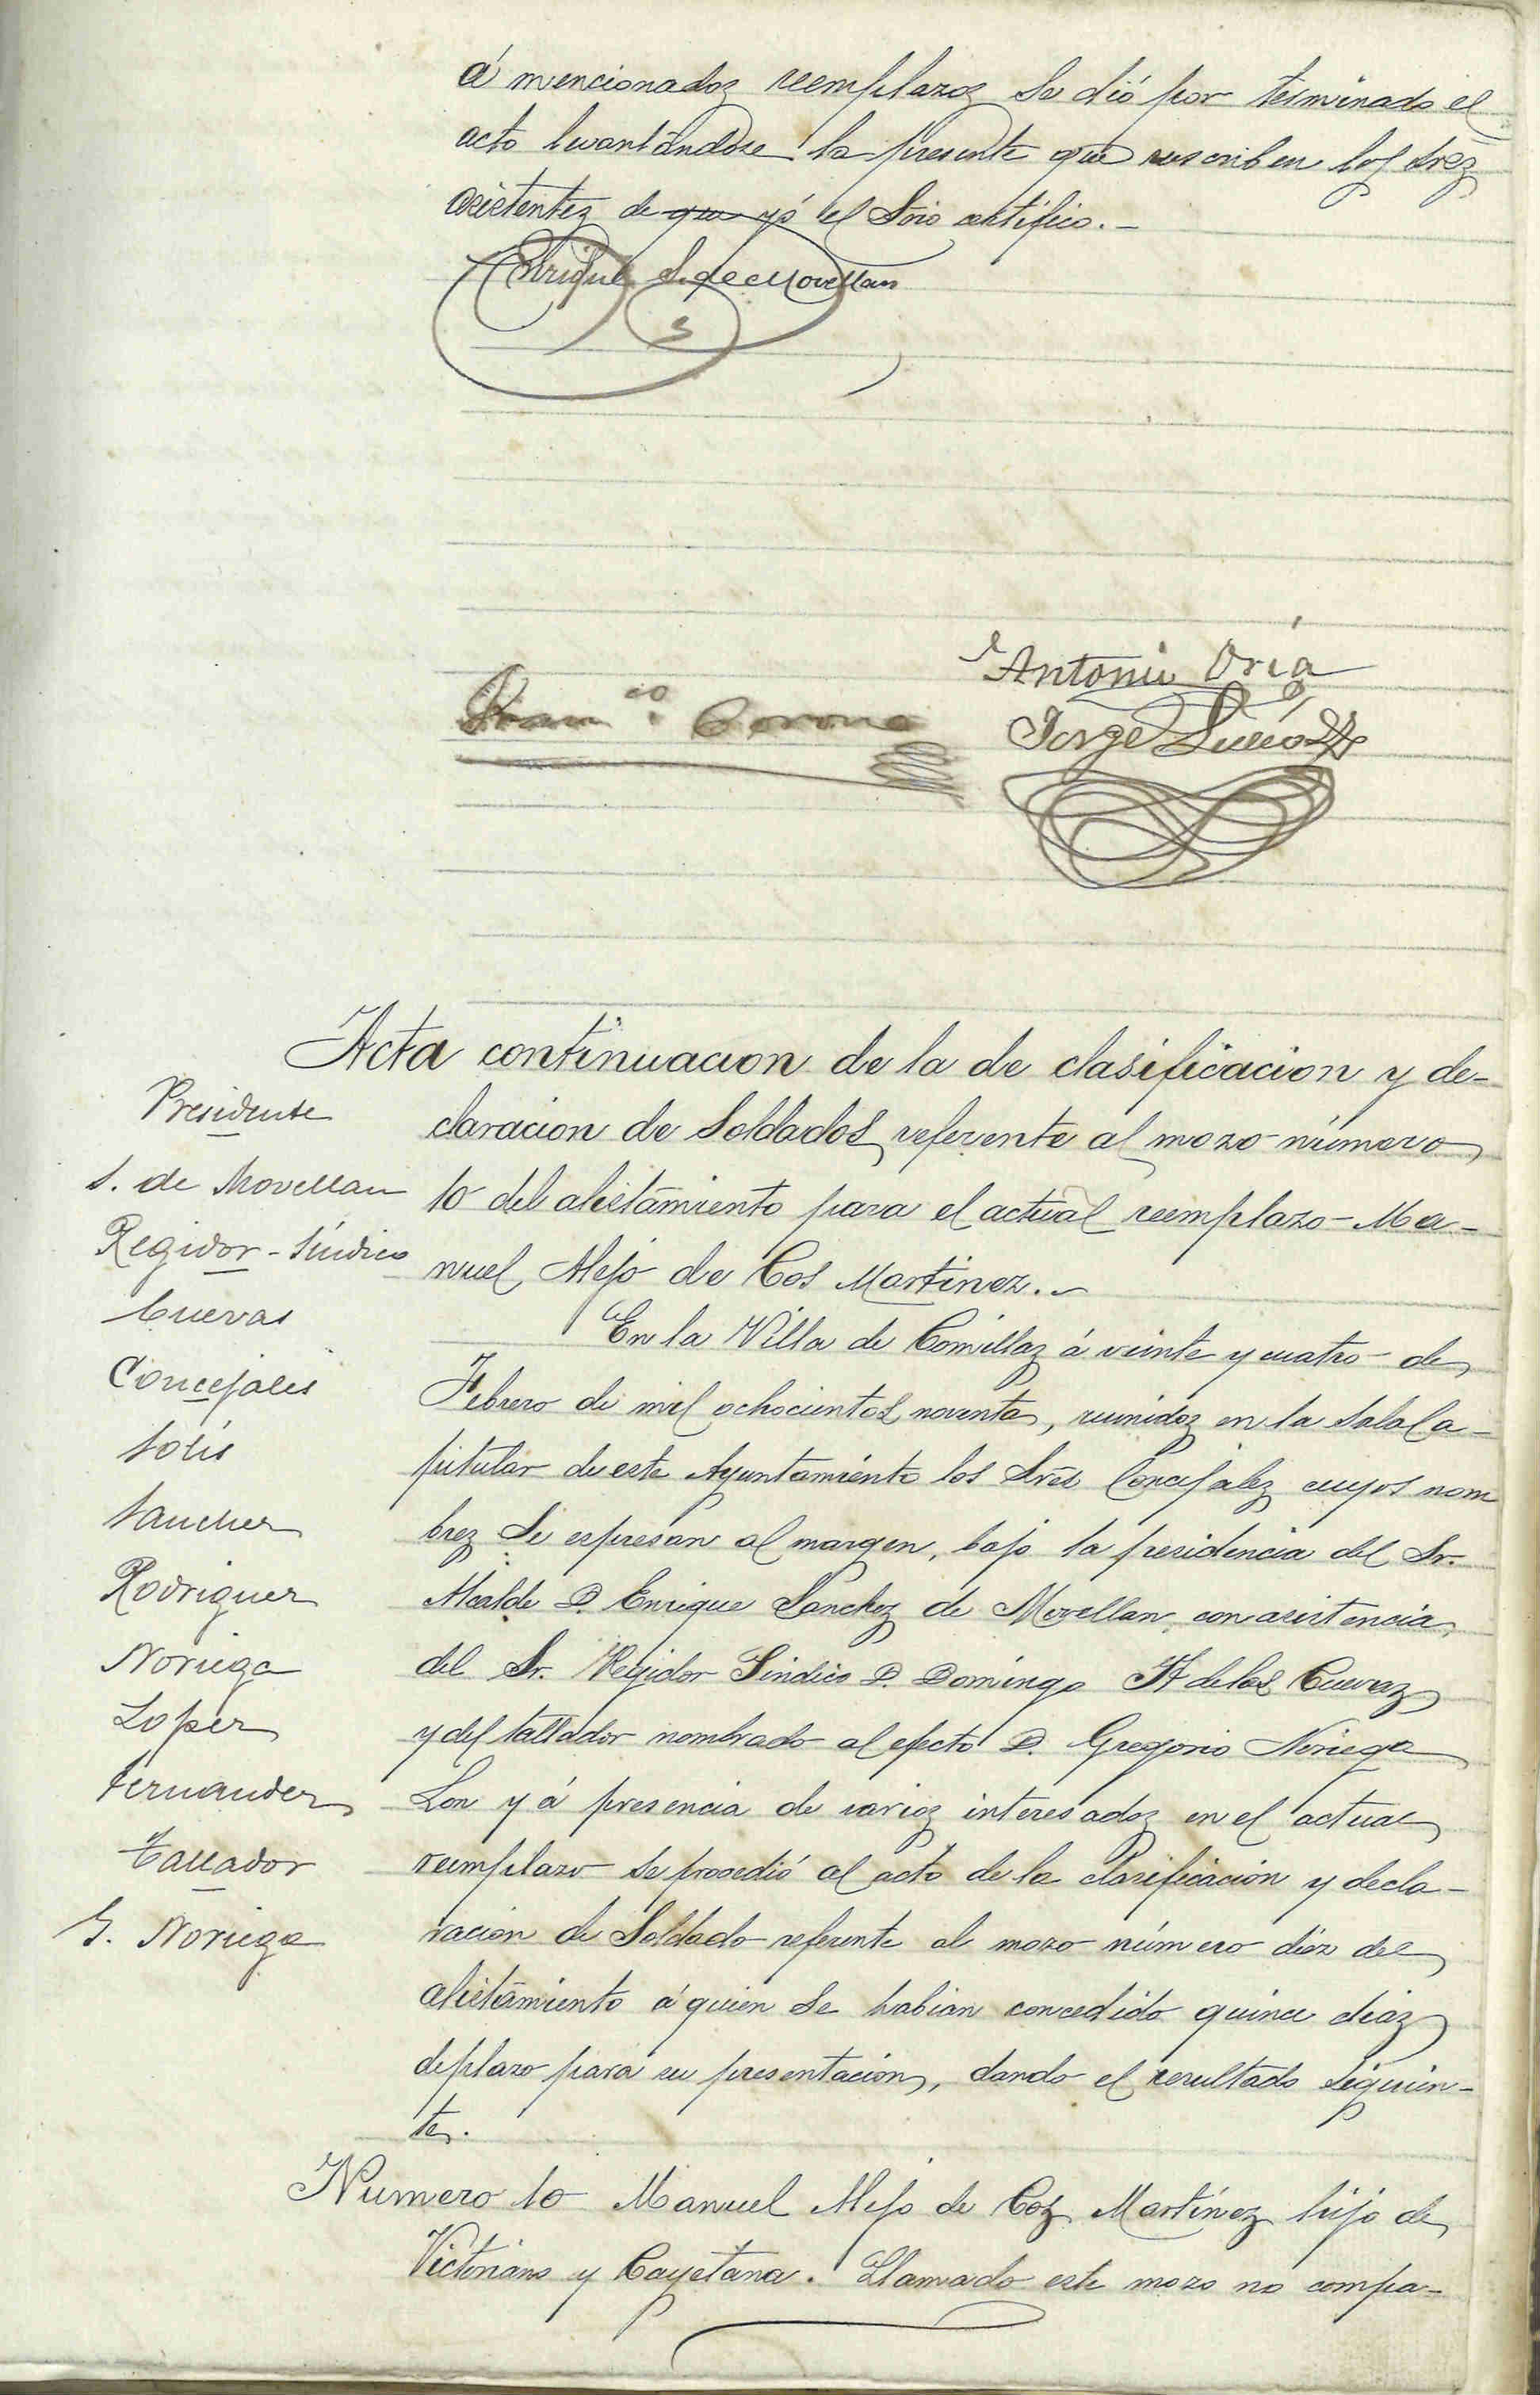 á mencionados reemplazos se dió por terminado el
acto levantándose la presente que suscriben los Sres
asistentes de que yó el Srio certifico.-
Enrique S. de Movellan
Antonio Oria
Fran.co
Jorge
Acta continuacion de la de clasificacion y de-
claracion de Soldados referente al mozo número
10 del alistamiento para el actual reemplazo - Ma-
nuel Alejo de Cos Martinez.
Presidente
S. de Movellan
Regidor-Síndico
Cuevas
Concejales
Solis
Sanchez
Rodriguez
Noriega
Lopez
Fernandez
Tallador
G. Noriega
En la Villa de Comillas á veinte y cuatro de
Febrero de mil ochocientos noventa, reunidos en la Sala Ca-
pitular de este Ayuntamiento los Sres Concejales cuyos nom
bres se espresan al margen, bajo la presidencia del Sr.
Alcalde D. Enrique Sanchez de Movellan, con asistencia
del Sr. Regidor Sindico D. Domingo de las Cuevas
y del tallador nombrado al efecto D. Gregorio Noriega
Lon y á presencia de varios interesados en el actual
reemplazo se prosedió al acto de la clasificación y decla-
racion de Soldado referente al mozo número diez del
alistamiento á quien se habian concedido quince dias
de plazo para su presentacion, dando el resultado siguien-
te.
Numero 10 Manuel Alejo de Cos Martínez hijo de
Victoriano y Cayetana. Llamado este mozo no compa-